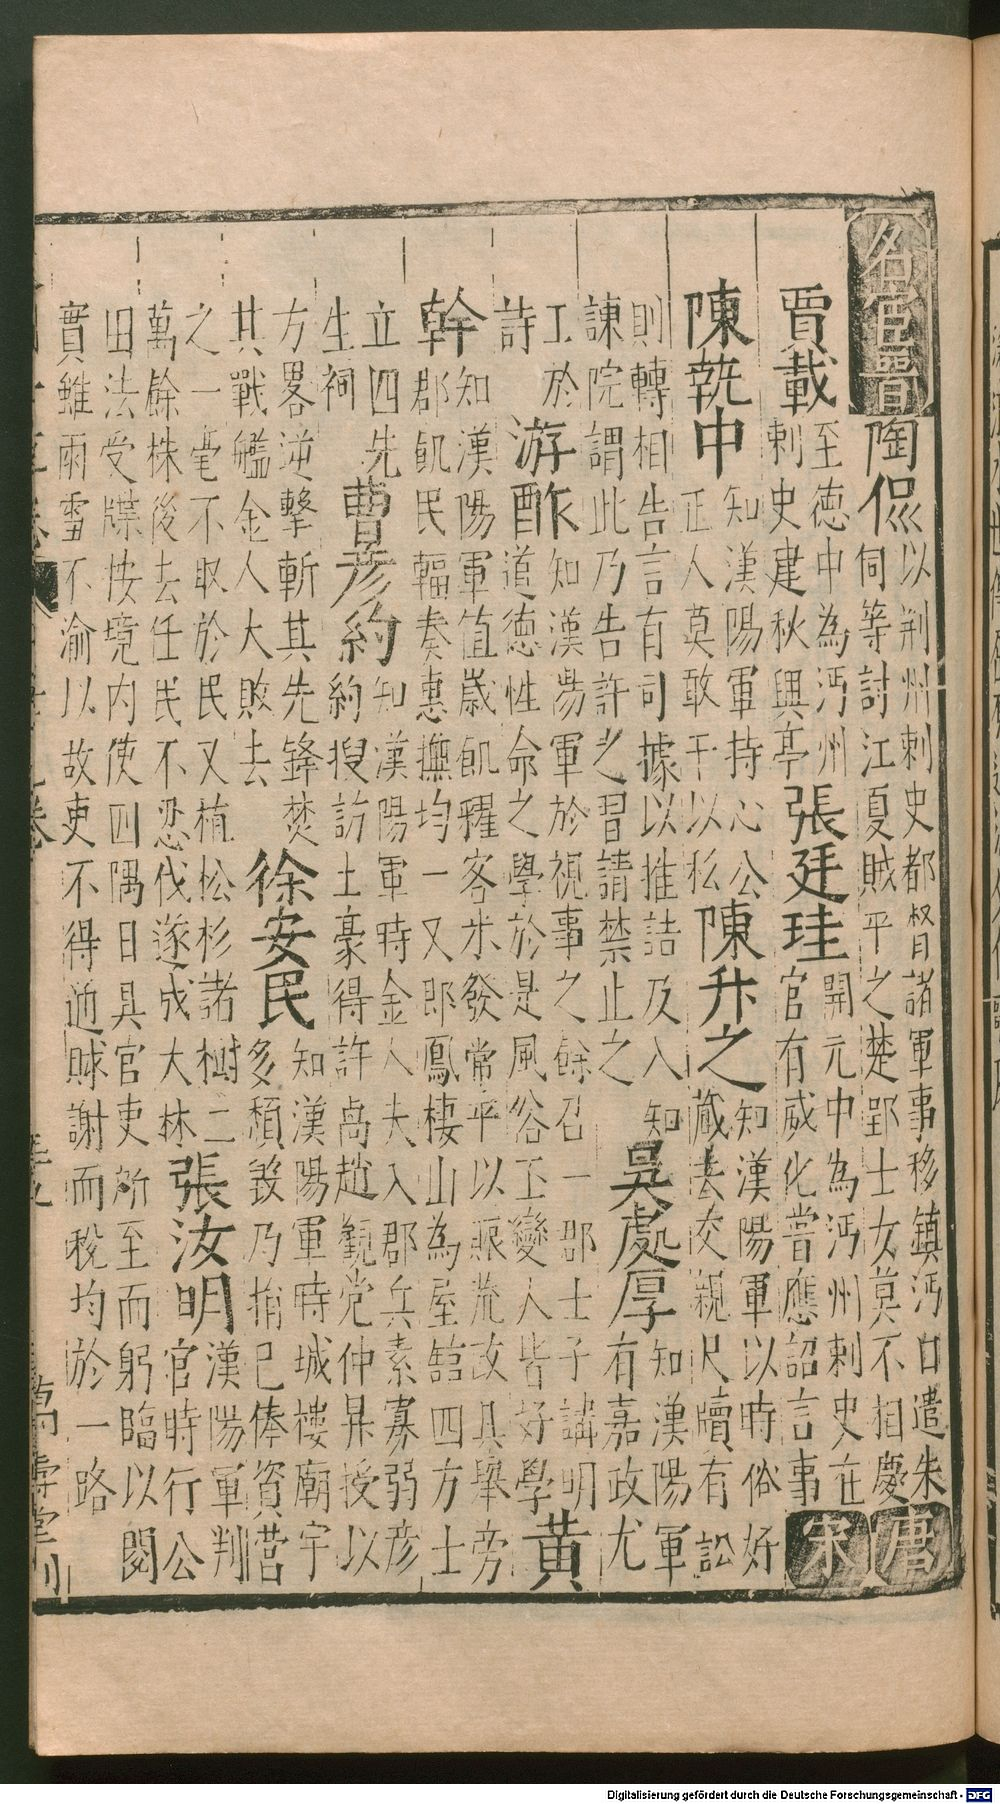 名宦 晉 陶侃 以荆州刺史都督諸軍事移鎮沔口遣朱
伺等討江夏賊平之楚郢士女莫不相慶 唐
賈載 至德中為沔州
刺史建秋興亭 張廷珪 開元中為沔州刺史在
官有威化嘗應詔言事 宋
陳執中 知漢陽軍持心公
正人莫敢干以私 陳升之 知漢陽軍以時俗好
藏去交親尺牘有訟
則轉相告言有司據以推詰及入知
諫院謂此乃告許之習請禁止之 吳處厚 知漢陽軍
有嘉政尤
工於
詩 游酢 知漢陽軍於視事之餘召一郡士子講明
道德性命之學於是風俗丕變人皆好學 黃
榦 知漢陽軍值歲飢糴客米發常平以賑荒政具舉旁
郡飢民輻奏惠撫均一又即鳳棲山為屋舘四方士
立四先
生祠 曹彥約 知漢陽軍時金人大入郡兵素寡弱彥
約搜訪土豪得許卨趙觀党仲昇授以
方畧逆擊斬其先鋒焚
其戰艦金人大敗去 徐安民 知漢陽軍時城樓廟宇
多頹毀乃捐己俸資營
之一毫不取於民又植松杉諸樹二
萬餘株後去任民不忍伐遂成大林 張汝明 漢陽軍判
官時行公
田法受牒按境內使四隅日具官吏所至而躬臨以閱
實雖雨雪不渝以故吏不得逋賕謝而稅均於一路
萬壽堂刊
Digitalisierung gefördert durch die Deutsche Forschungsgemeinschaft - DFG